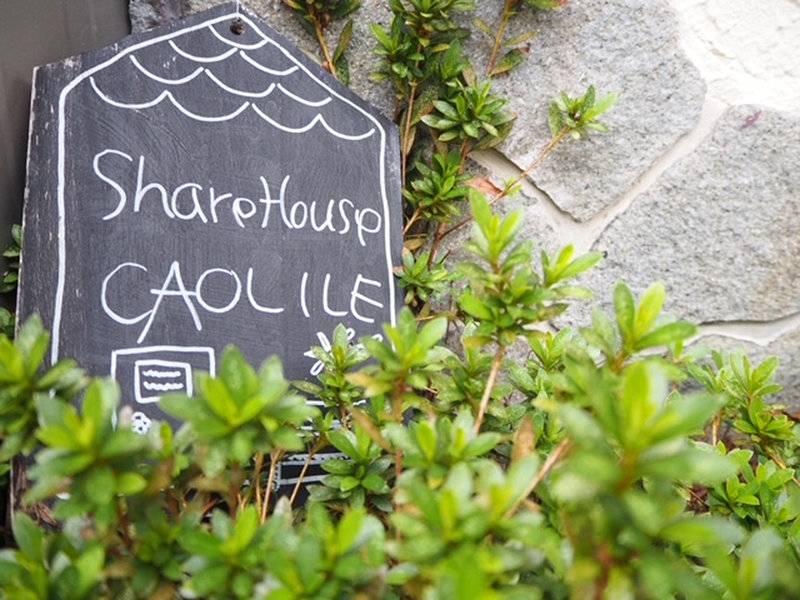 ShareHouse
CAOL ILE